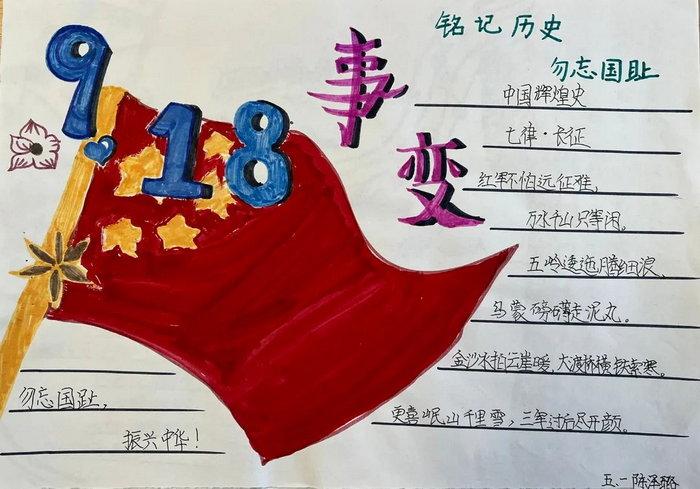 9.18
事变
铭记历史
勿忘国耻
中国辉煌史
七律·长征
红军不怕远征难,
万水千山只等闲。
五岭逶迤腾细浪,
乌蒙磅礴走泥丸。
金沙水拍云崖暖,大渡桥横铁索寒。
更喜岷山千里雪,三军过后尽开颜。
勿忘国耻,
振兴中华!
五.一 陈泽